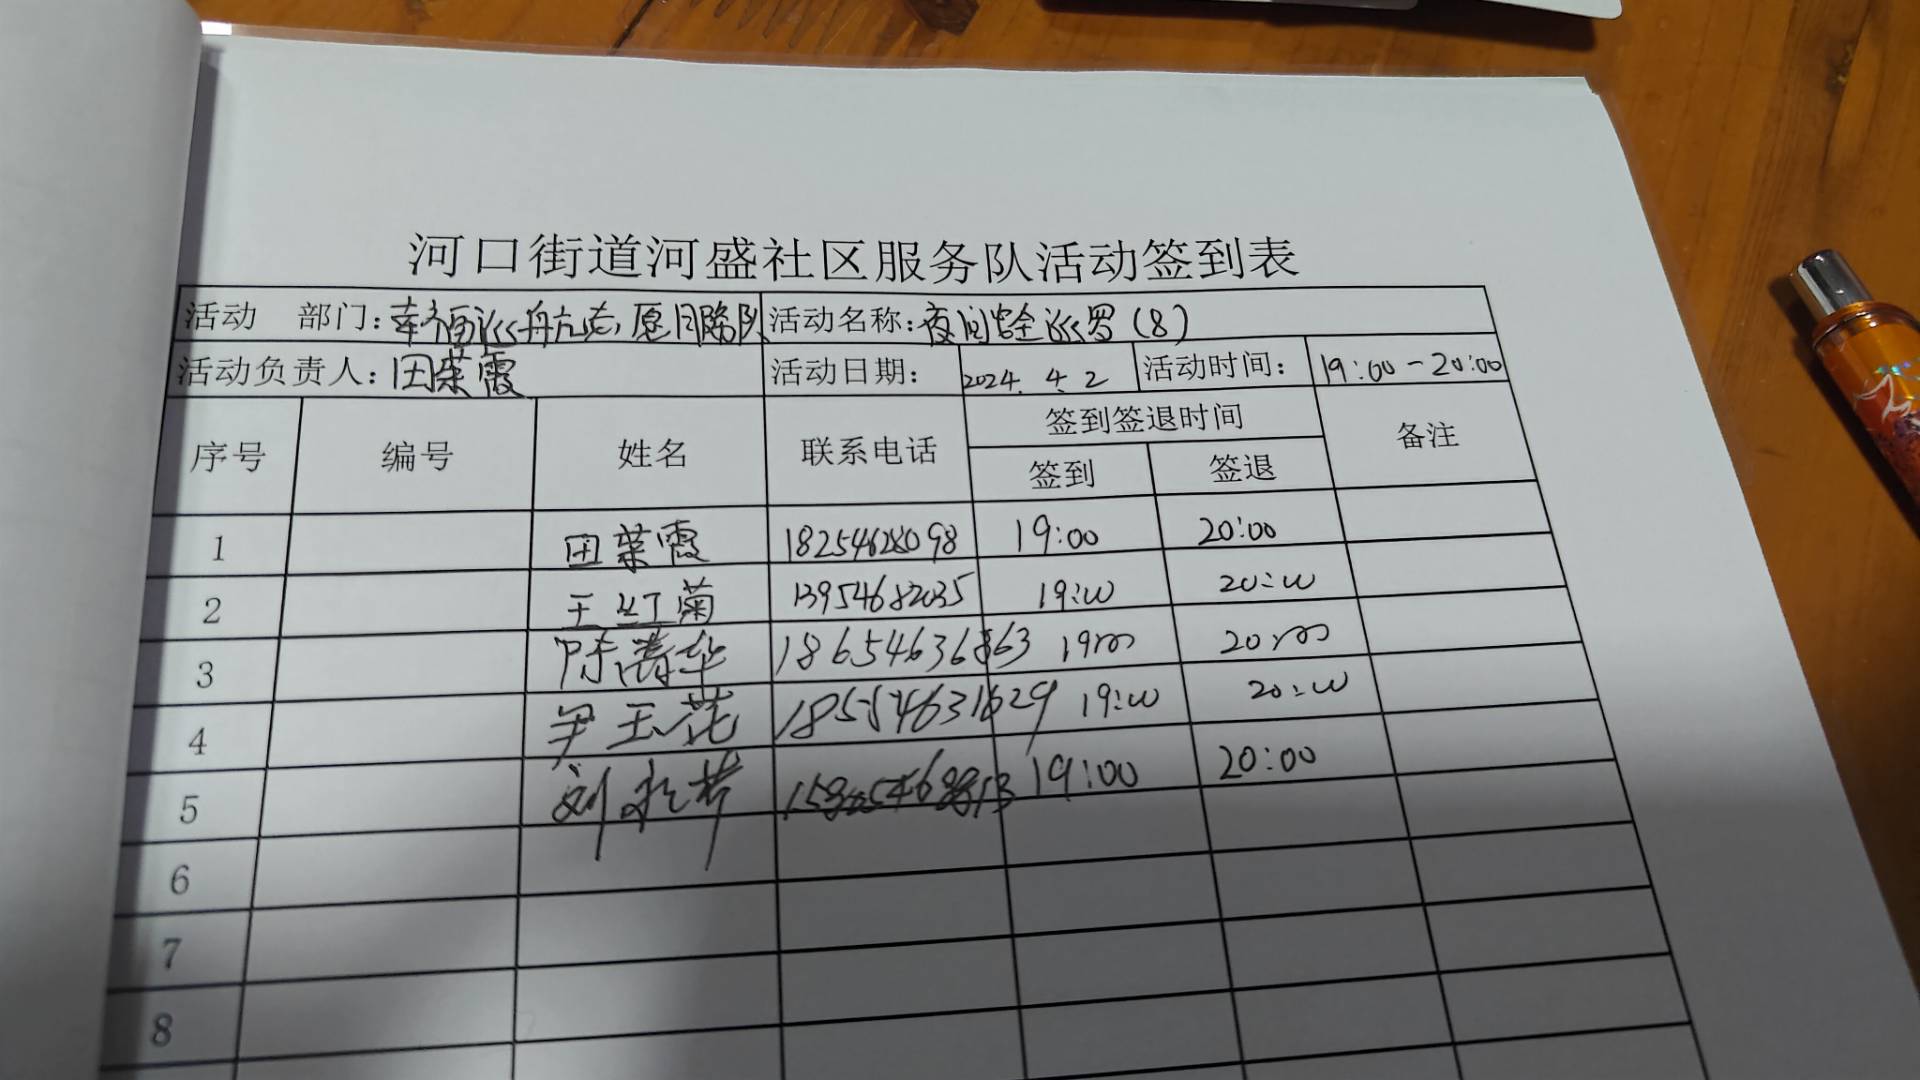 河口街道河盛社区服务队活动签到表
活动 部门：幸福巡舟志愿服务队 活动名称：夜间安全巡罗(8)
活动负责人：田荣霞 活动日期： 2024. 4. 2 活动时间： 19:00-20:00
序号 编号 姓名 联系电话 签到签退时间 备注
签到 签退
1 田荣霞 18254628098 19:00 20:00
2 王红菊 13954682035 19:00 20:00
3 陈清华 18654636863 19:00 20:00
4 尹玉花 18554631629 19:00 20:00
5 刘 19:00 20:00
6
7
8